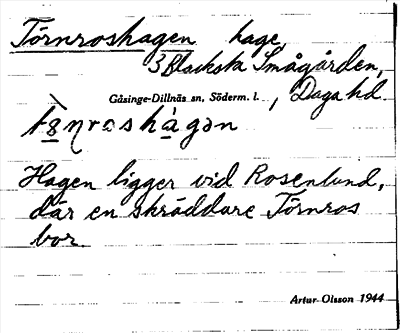 Törnroshagen hage
3 Blacksta Smågården,
Gåsinge-Dillnäs sn, Söderm. l., Daga hd
Hagen ligger vid Rosenlund,
där en skräddare Törnros
bor.
Artur Olsson 1944